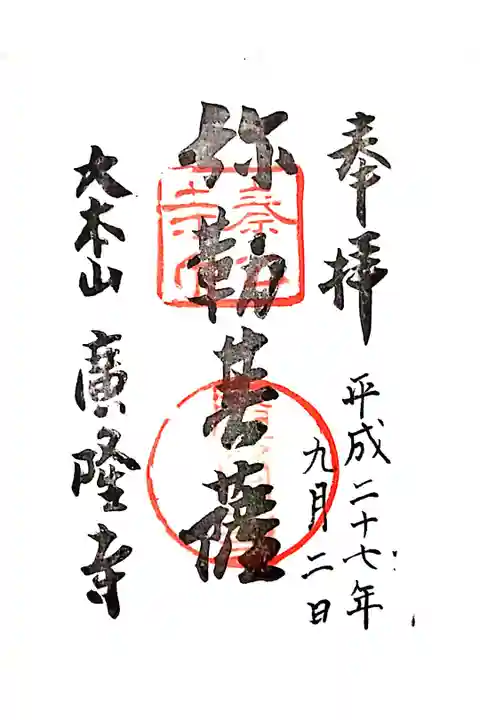 奉拝
平成二十七年
九月二日
弥勒菩薩
大本山 廣隆寺